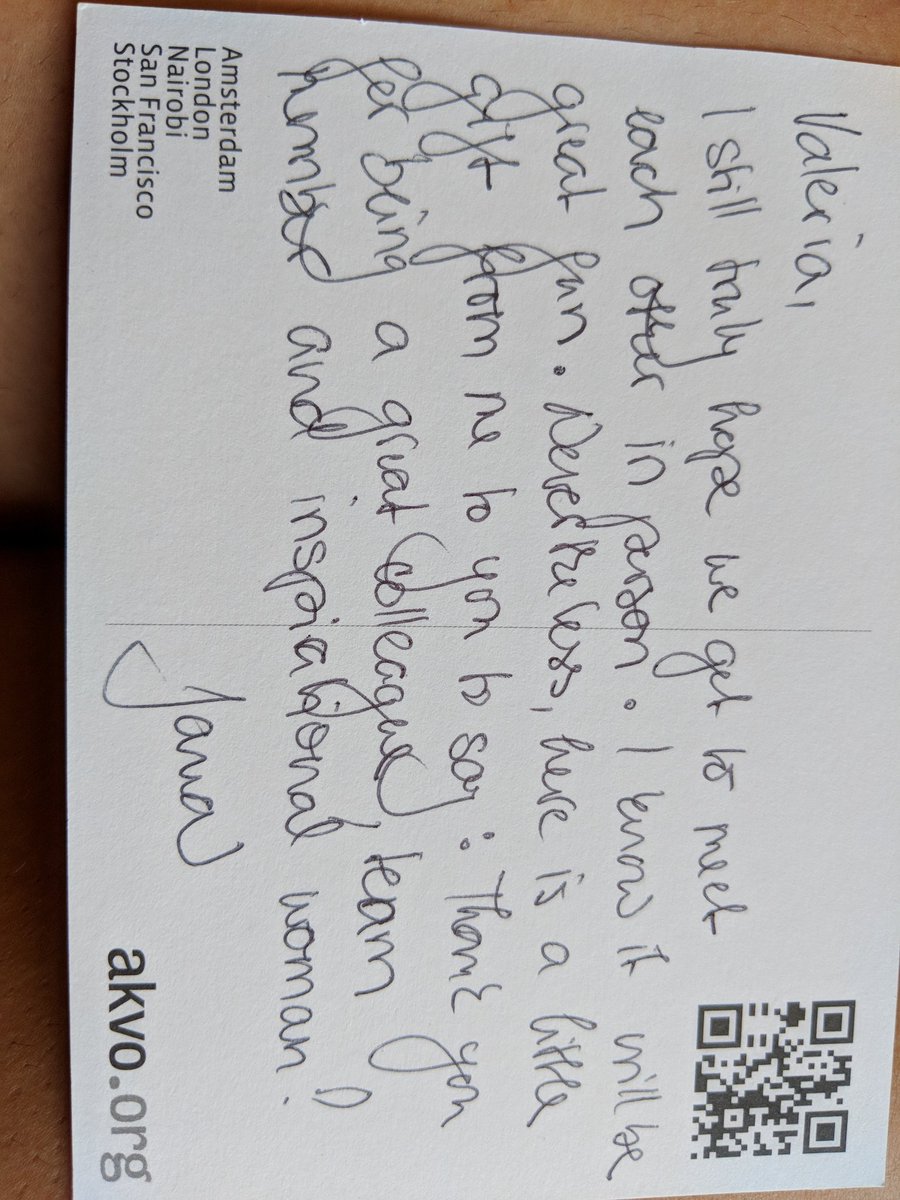 Valeria,
I still truly hope we get to meet
each other in person. I know it will be
great fun. Nevertheless, here is a little
gift from me to you to say: Thank you
for being a great colleague, team
member and inspirational woman!
Jana
Amsterdam
London
Nairobi
San Francisco
Stockholm
akvo.org